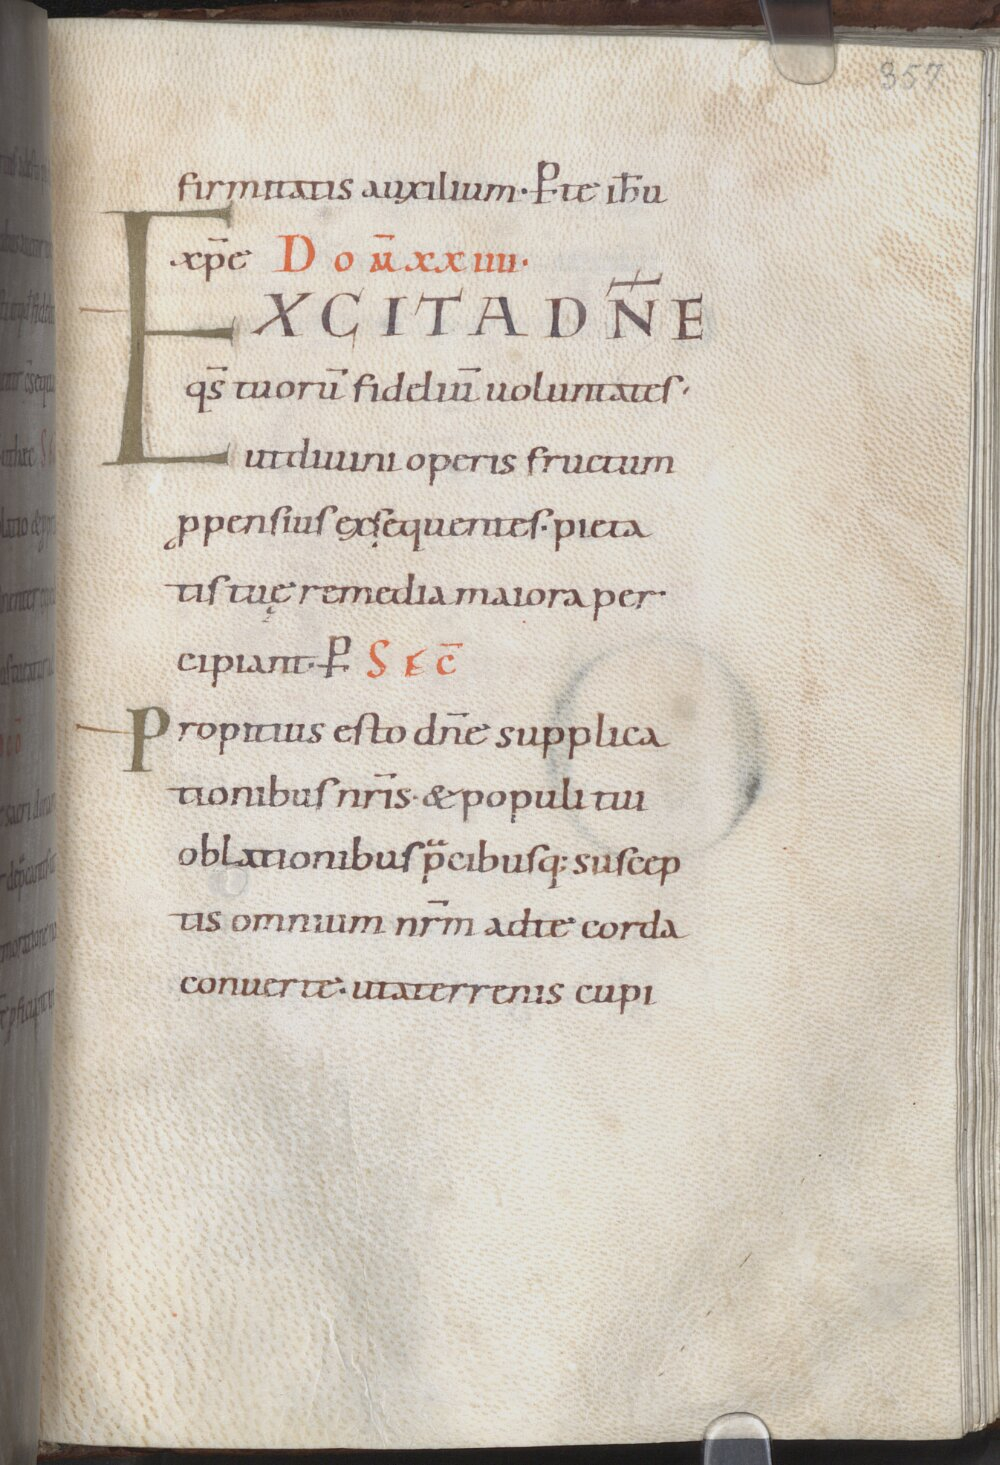 357
firmitatis auxilium· P̲ te ih̅u
xp̅e DOM̅ XXIIII·
EXCITA DN̅E
qs̅ tuoru̅ fideliu̅ uoluntates·
ut diuini operis fructum
ꝓpensius exsequentes· pieta
tis tuę remedia maiora per
cipiant· P̲ SEC̅
Propitius esto dn̅e supplica
tionibus nr̅is· & populi tui
oblationibus p̅cibusq; suscep
tis omnium nr̅m ad te corda
conuerte· ut a terrenis cupi